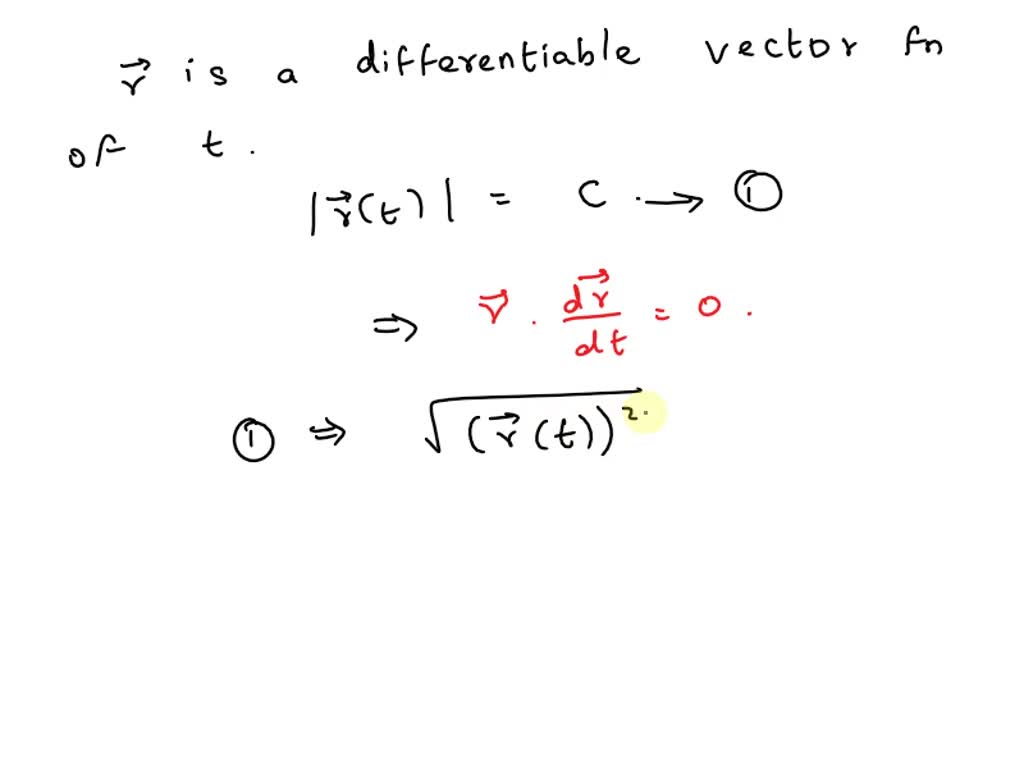 r⃗ is a differentiable vector fn
of t.
|r⃗(t)| = C → ①
⇒ r⃗ . dr⃗/dt = 0.
① ⇒ √(r⃗(t))²